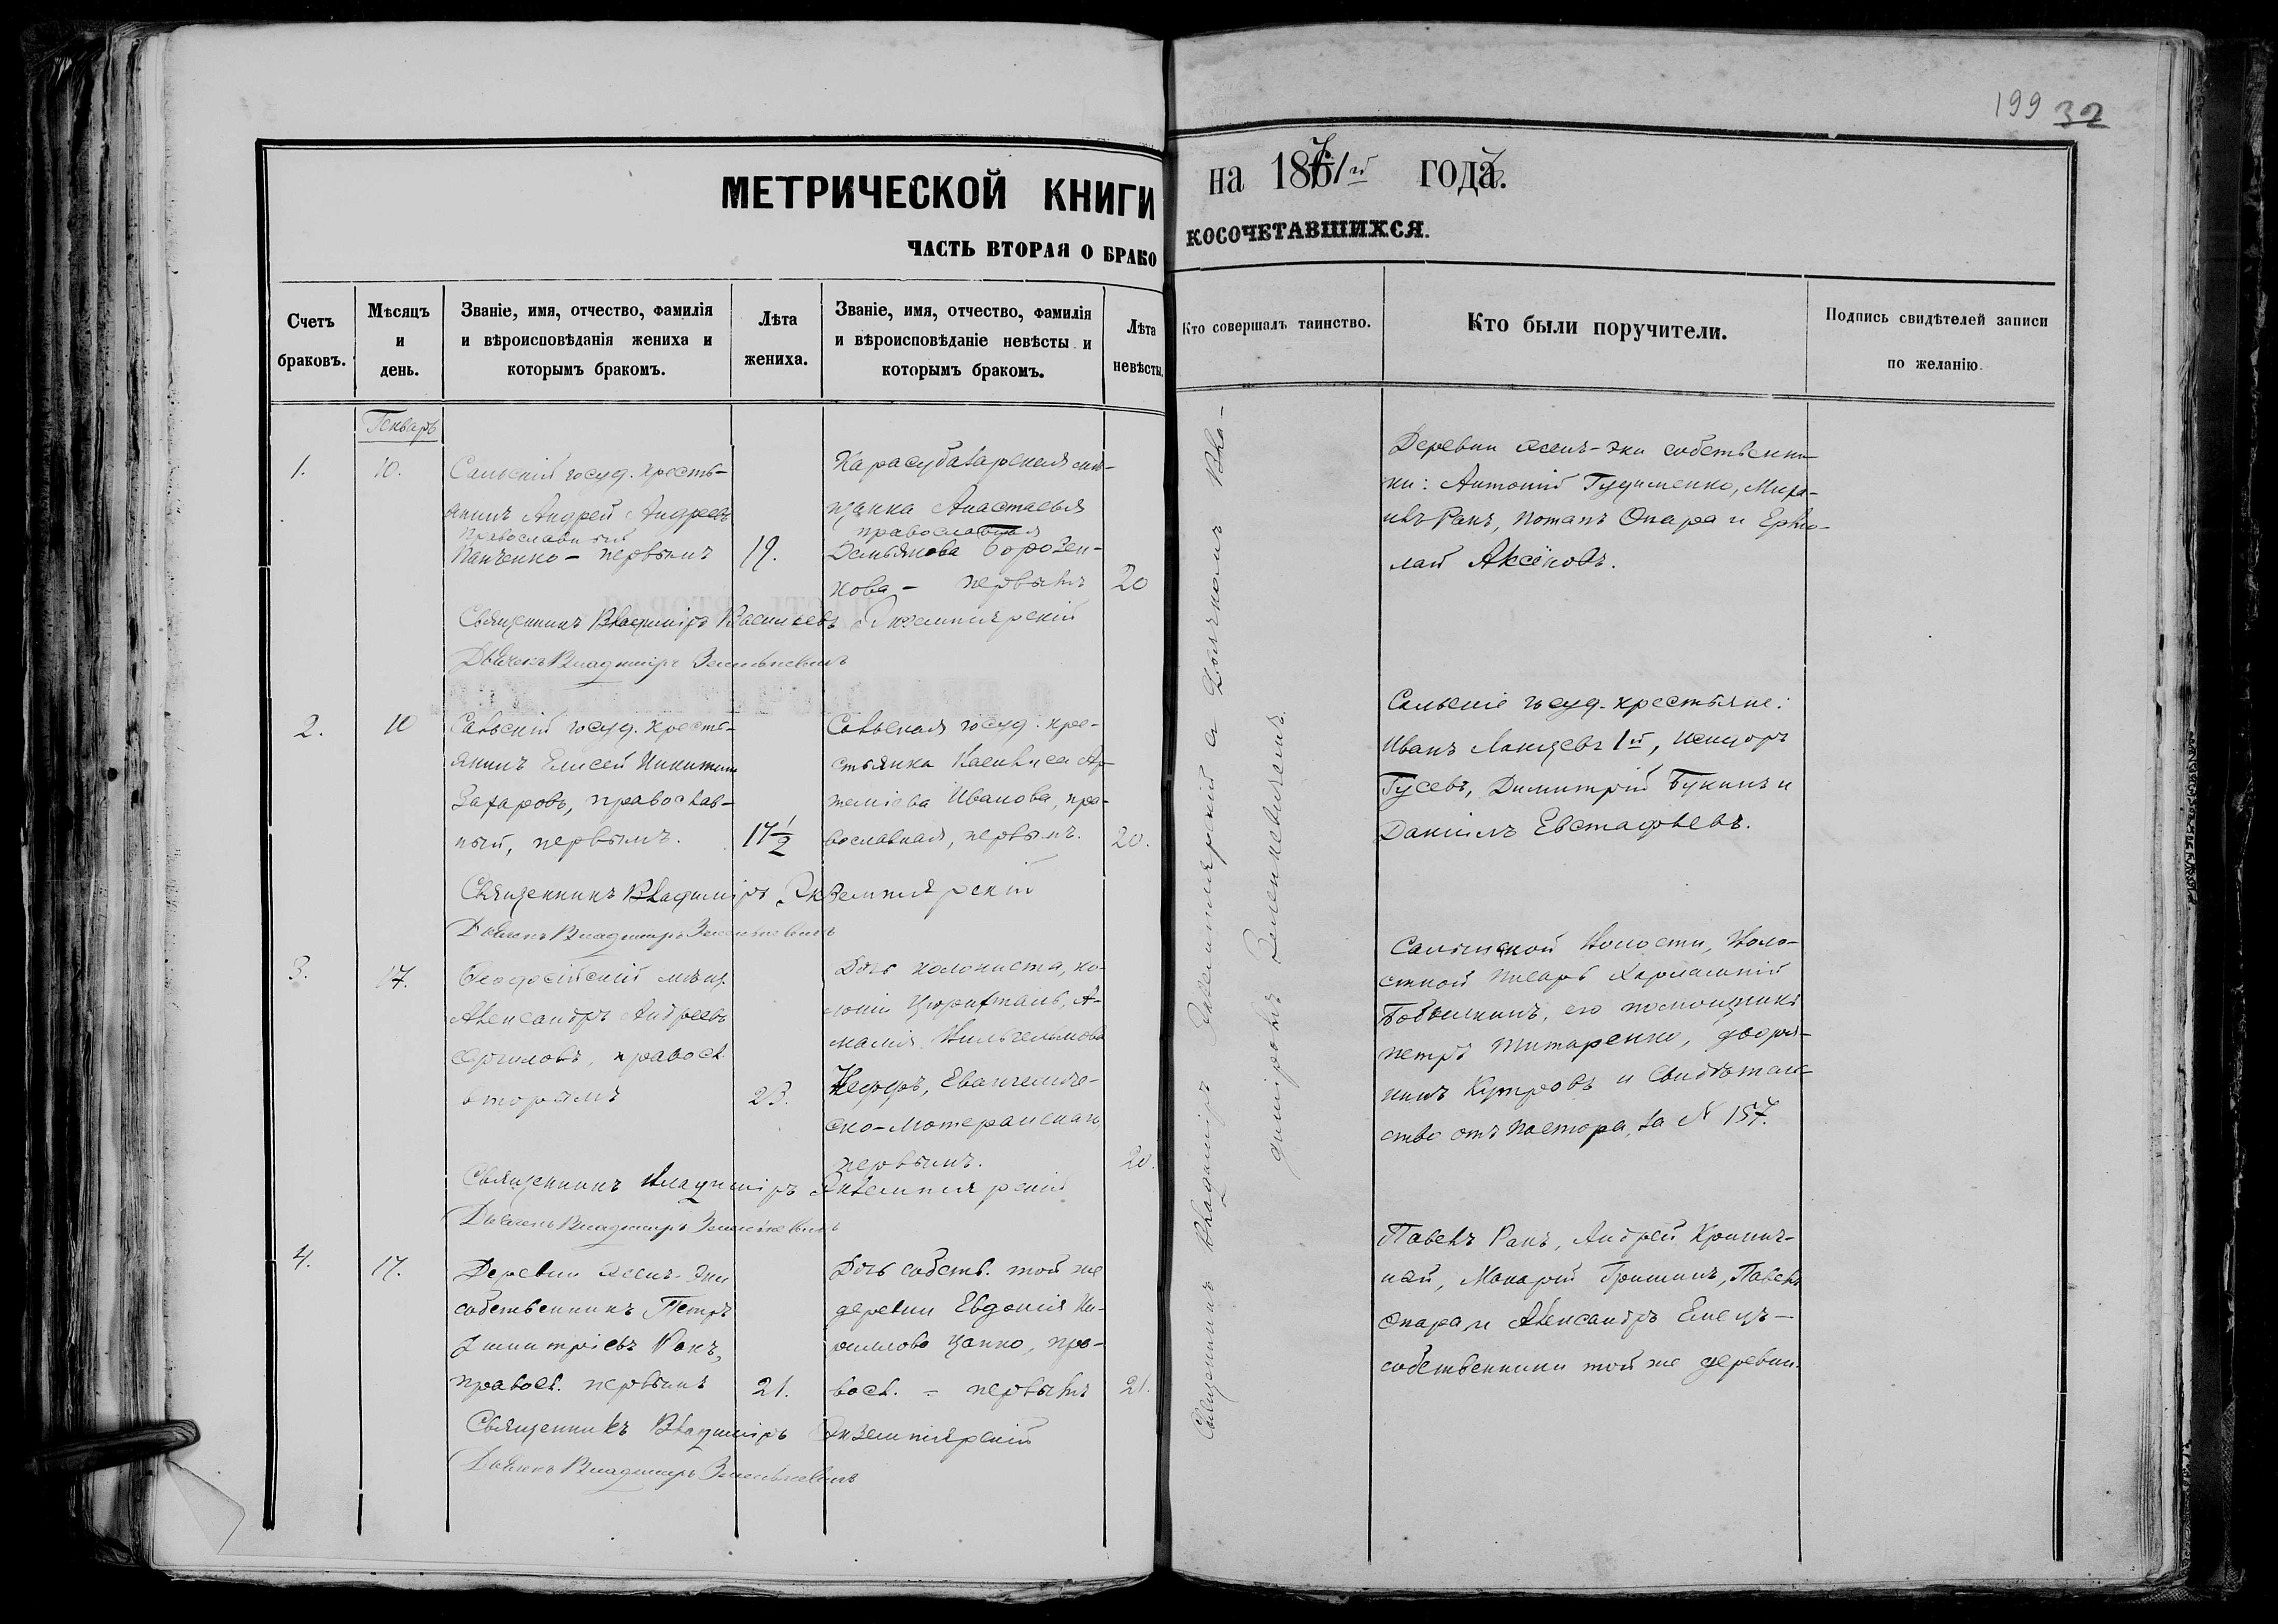 199 32
МЕТРИЧЕСКОЙ КНИГИ на 1871й годъ.
ЧАСТЬ ВТОРАЯ О БРАКОСОЧЕТАВШИХСЯ.
Счетъ браковъ.
Мѣсяцъ и день.
Званіе, имя, отчество, фамилія и вѣроисповѣданія жениха и которымъ бракомъ.
Лѣта жениха.
Званіе, имя, отчество, фамилія и вѣроисповѣданіе невѣсты и которымъ бракомъ.
Лѣта невѣсты.
Кто совершалъ таинство.
Кто были поручители.
Подпись свидѣтелей записи по желанію.
Генварь
1.
10.
Сальскій госуд. кресть-
янинъ Андрей Андреевъ
православный
Панченко – первымъ
19.
Карасубазарская мѣ-
щанка Анастасья
православная
Демьянова Борозен-
кова – первымъ
20
Деревни
собственни-
ки: Антоній Гудименко, Миха-
илъ Ракъ, Потапъ Опара и Ермо-
лай Аксёновъ.
Священникъ Владиміръ Васильевъ Экземплярскій
Дьячекъ Владимиръ Зеленкевичъ
2.
10
Сальскій госуд. кресть-
янинъ Елисей Никитинъ
Захаровъ, православ-
ный, первымъ.
17½
Сальская госуд. кре-
стьянка Василиса Ар-
темісва Иванова, пра-
вославная, первымъ.
20.
Сальскіе госуд. крестьяне:
Иванъ 1й, Исидоръ
Гусевъ, Димитрій Букинъ и
Даніилъ Евстафьевъ.
Священникъ Владиміръ Экземплярскій
Дьячекъ Владимиръ Зеленкевичъ
3.
17.
Ѳеодосійскій мѣщ.
Александръ Андреевъ
правосл.
вторымъ
23.
Дочь колониста, ко-
лоніи Цюрихталь, А-
малія Вильгельмова
Нефъ, Евангеличе-
ско-Лютеранская,
первымъ.
20.
Салынской Волости, Воло-
стной писарь Харлампій
Бобылкинъ, его помощникъ
Петръ Титаренко, дворя-
нинъ и свидѣтель-
ство отъ Пастора, за № 157.
Священникъ Владиміръ Экземплярскій
Дьячекъ Владимиръ Зеленкевичъ
4.
17.
Деревни
собственникъ Петръ
Димитріевъ Ракъ,
правосл. первымъ
21.
Дочь собств. той же
деревни Евдокія Ки-
риллова Цапко, пра-
восл. – первымъ
21.
Павелъ Ракъ, Андрей Кринич-
ный, Макарій Гришинъ, Павелъ
Опара и Александръ Емецъ –
собственники той же деревни.
Священникъ Владиміръ Экземплярскій
Дьячекъ Владимиръ Зеленкевичъ
Священникъ Владиміръ Экземплярскій съ Дьячкомъ Вла-
диміромъ Зеленкевичемъ.